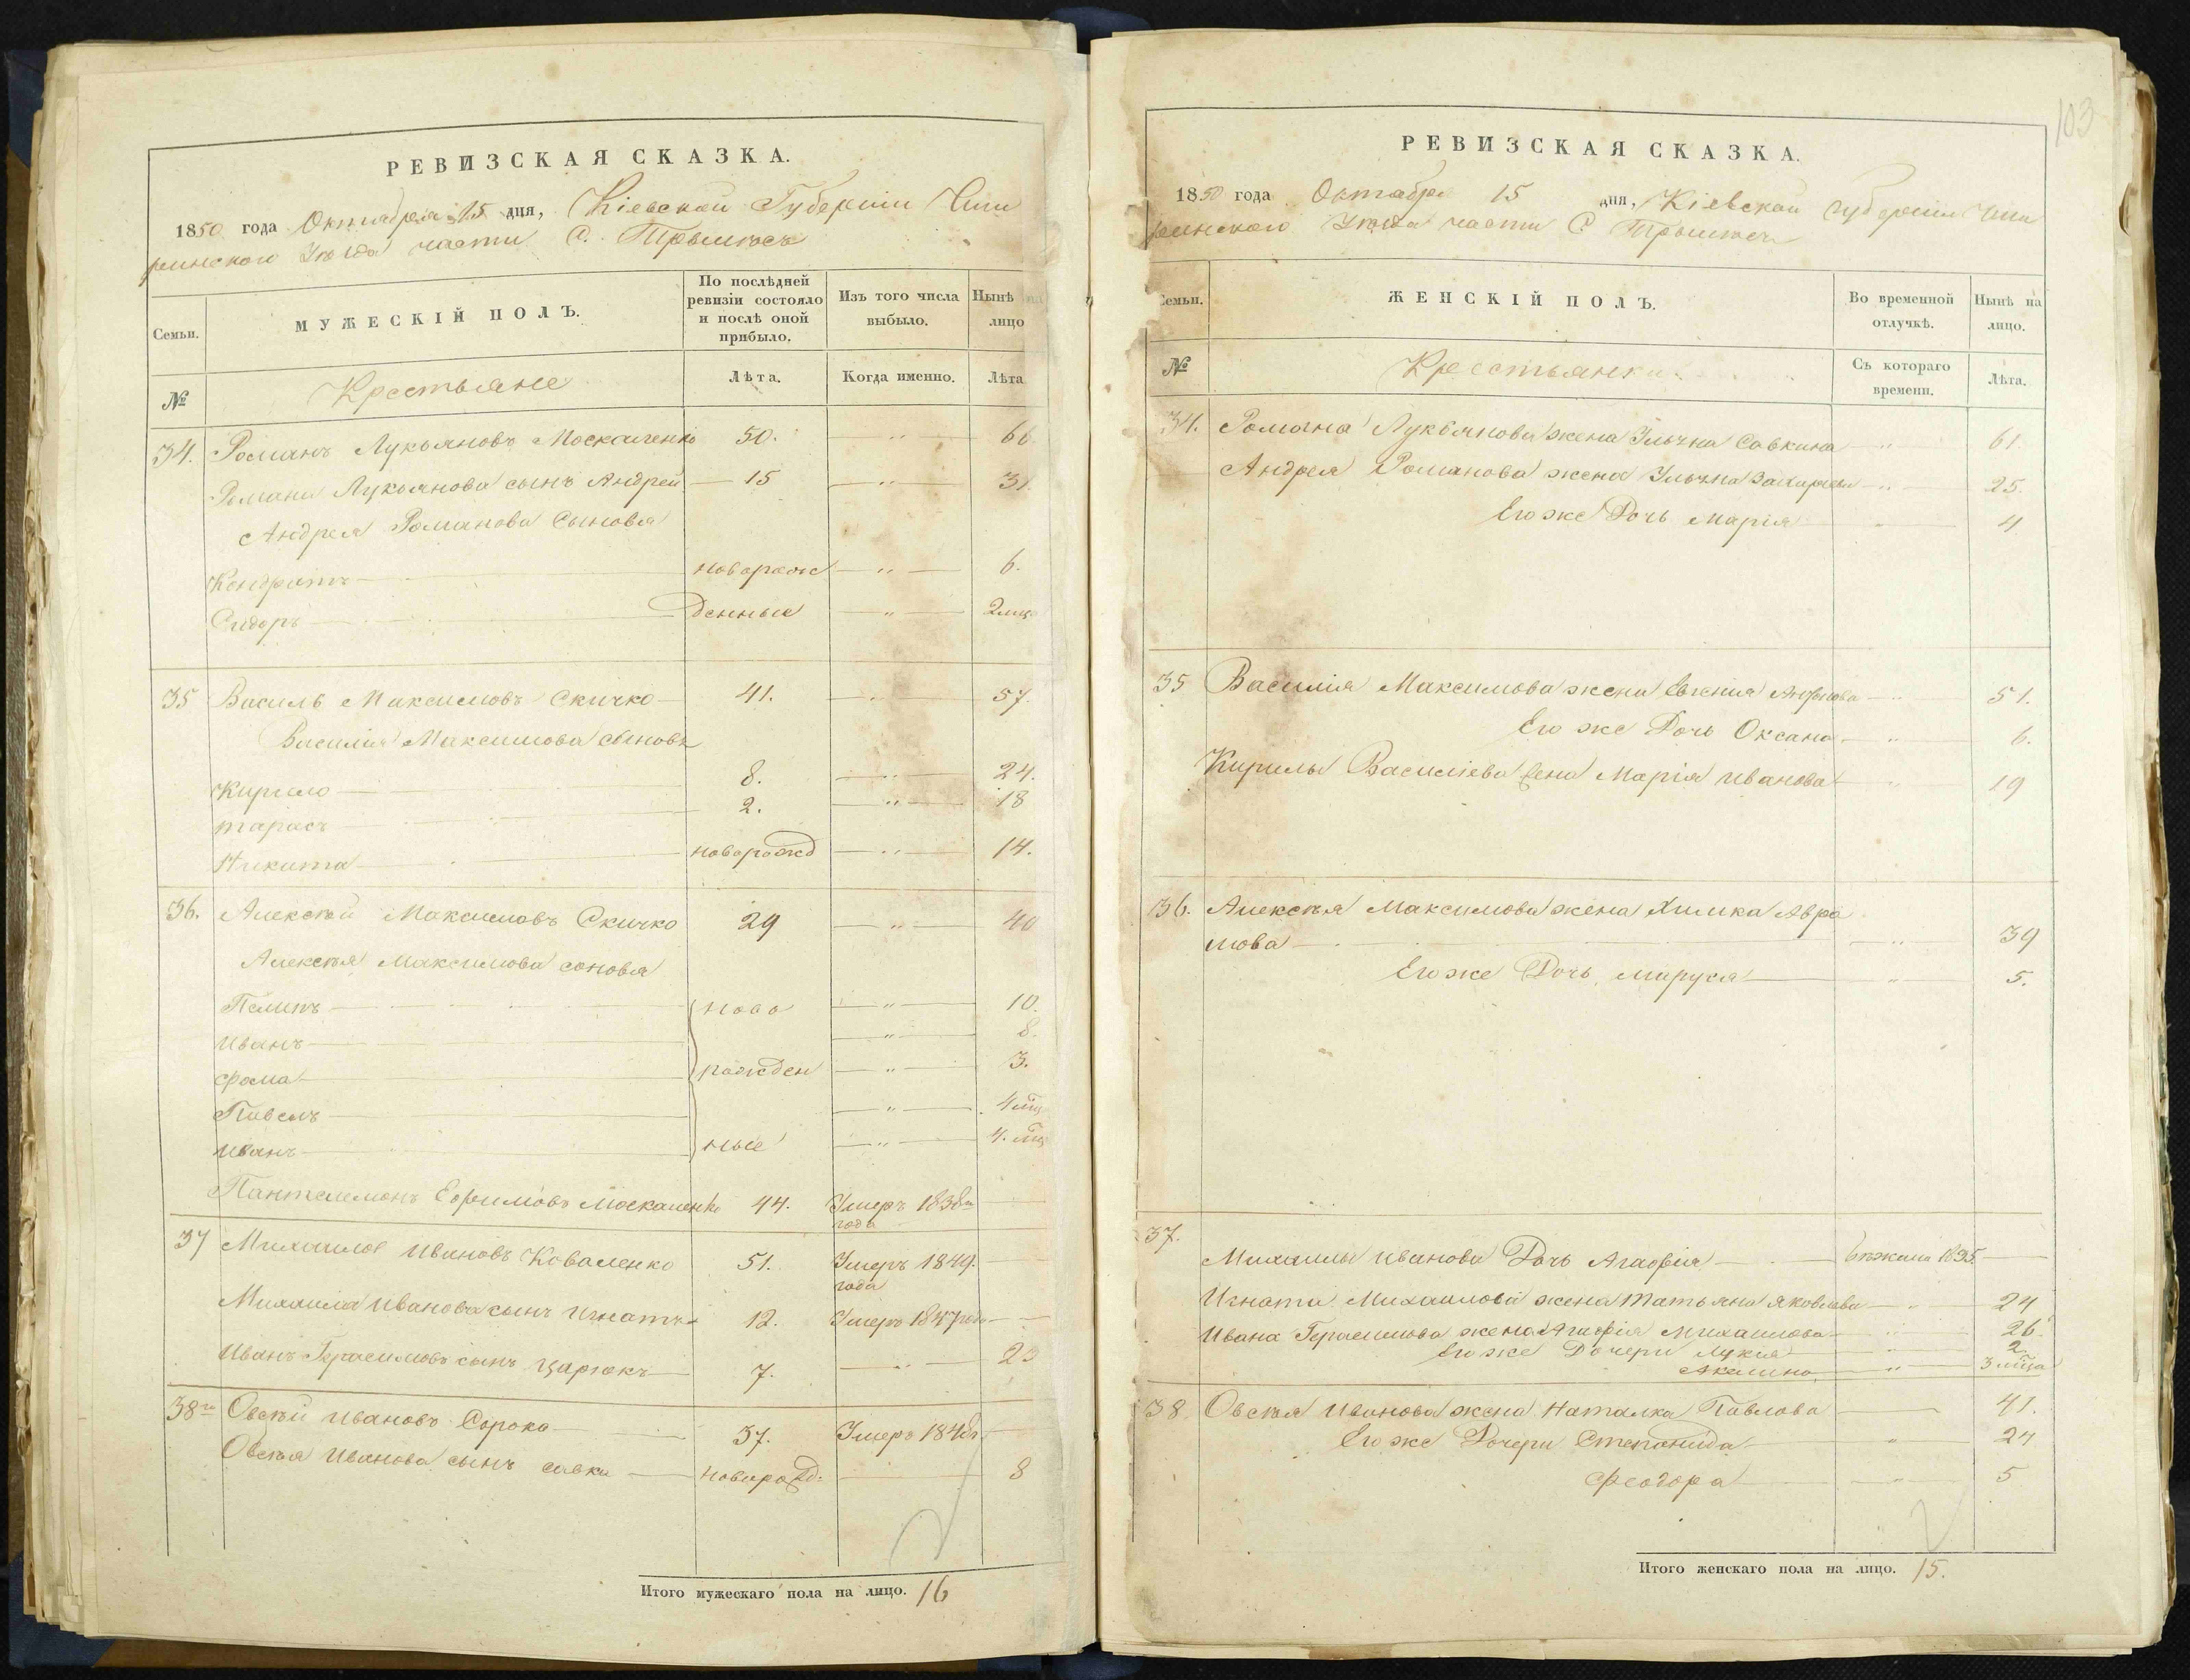 РЕВИЗСКАЯ СКАЗКА.
1850 года Октября 15 дня, Кіевской Губерніи Чиги
ринского Уѣзда части С.
Семьи.
МУЖЕСКІЙ ПОЛЪ.
По послѣдней ревизіи состояло и послѣ оной прибыло.
Изъ того числа выбыло.
Нынѣ на лицо
№
Крестьяне
Лѣта.
Когда именно.
Лѣта
34. Романъ Лукьяновъ Москаленко 50. — " — 66
Романа Лукьянова сынъ Андрей — 15 — " — 31.
Андрея Романова Сыновья
Кондратъ — новорож — " — 6.
Сидоръ — денные — " — 2 мца
35 Василь Максимовъ Скичко — 41. — " — 57.
Василія Максимова сыновья
Кирило — 8. — " — 24.
тарасъ — 2. — " — 18
Никита — новорожд — " — 14.
36. Алексѣй Максимовъ Скичко 29 — " — 40
Алексѣя Максимова соновья
Пилипъ — ново — " — 10.
Иванъ — " — 8.
Фома — рожден — " — 3.
Павелъ — " — 4 мц
Иванъ — ные — " — 4. мц
Пантелемонъ Ефимовъ Москаленко 44. Умеръ 1838го
года
37 Михаилов Ивановъ Коваленко 51. Умеръ 1849.
года
Михаила Иванова сынъ Игнатъ 12. Умеръ 1847 года —
Иванъ Герасимовъ сынъ Царюкъ — 7. — " — 23
38го Овсѣй Ивановъ Сорока — 37. Умеръ 184
Овсѣя Иванова сынъ савка — новорожд: — 8
Итого мужескаго пола на лицо. 16
103
РЕВИЗСКАЯ СКАЗКА.
1850 года Октября 15 дня, Кіевской Губерніи Чиги
ринского Уѣзда части С
Семьи.
ЖЕНСКІЙ ПОЛЪ.
Во временной отлучкѣ.
Нынѣ на лицо.
№
Крестьянки
Съ котораго времени.
Лѣта.
34. Романа Лукьянова жена Ульяна Савкина — " — 61.
Андрея Романова жена Ульяна Захарьева — " — 25.
Его же Дочь Марія — " — 4
35 Василія Максимова жена Евгенія — " — 51.
Его же Дочь Оксана — " — 6.
Кирилы Василіева жена Марія Иванова — " — 19
36. Алексѣя Максимова жена Химка Авра
мова — " — 39
Его же Дочь Маруся — " — 5.
37.
Михаилы Иванова Дочь Агафія — бѣжала 1835 —
Игната Михаилова жена Татьяна Яковлева — " — 24
Ивана Герасимова жена Агафія Михаилова — " — 26.
Его же Дочери Лукія — " — 2.
Акилина — " — 3 мца
38 Овсѣя Иванова жена Наталка Павлова — 41.
Его же Дочери Степанида — " — 24
Феодора — " — 5
Итого женскаго пола на лицо. 15.